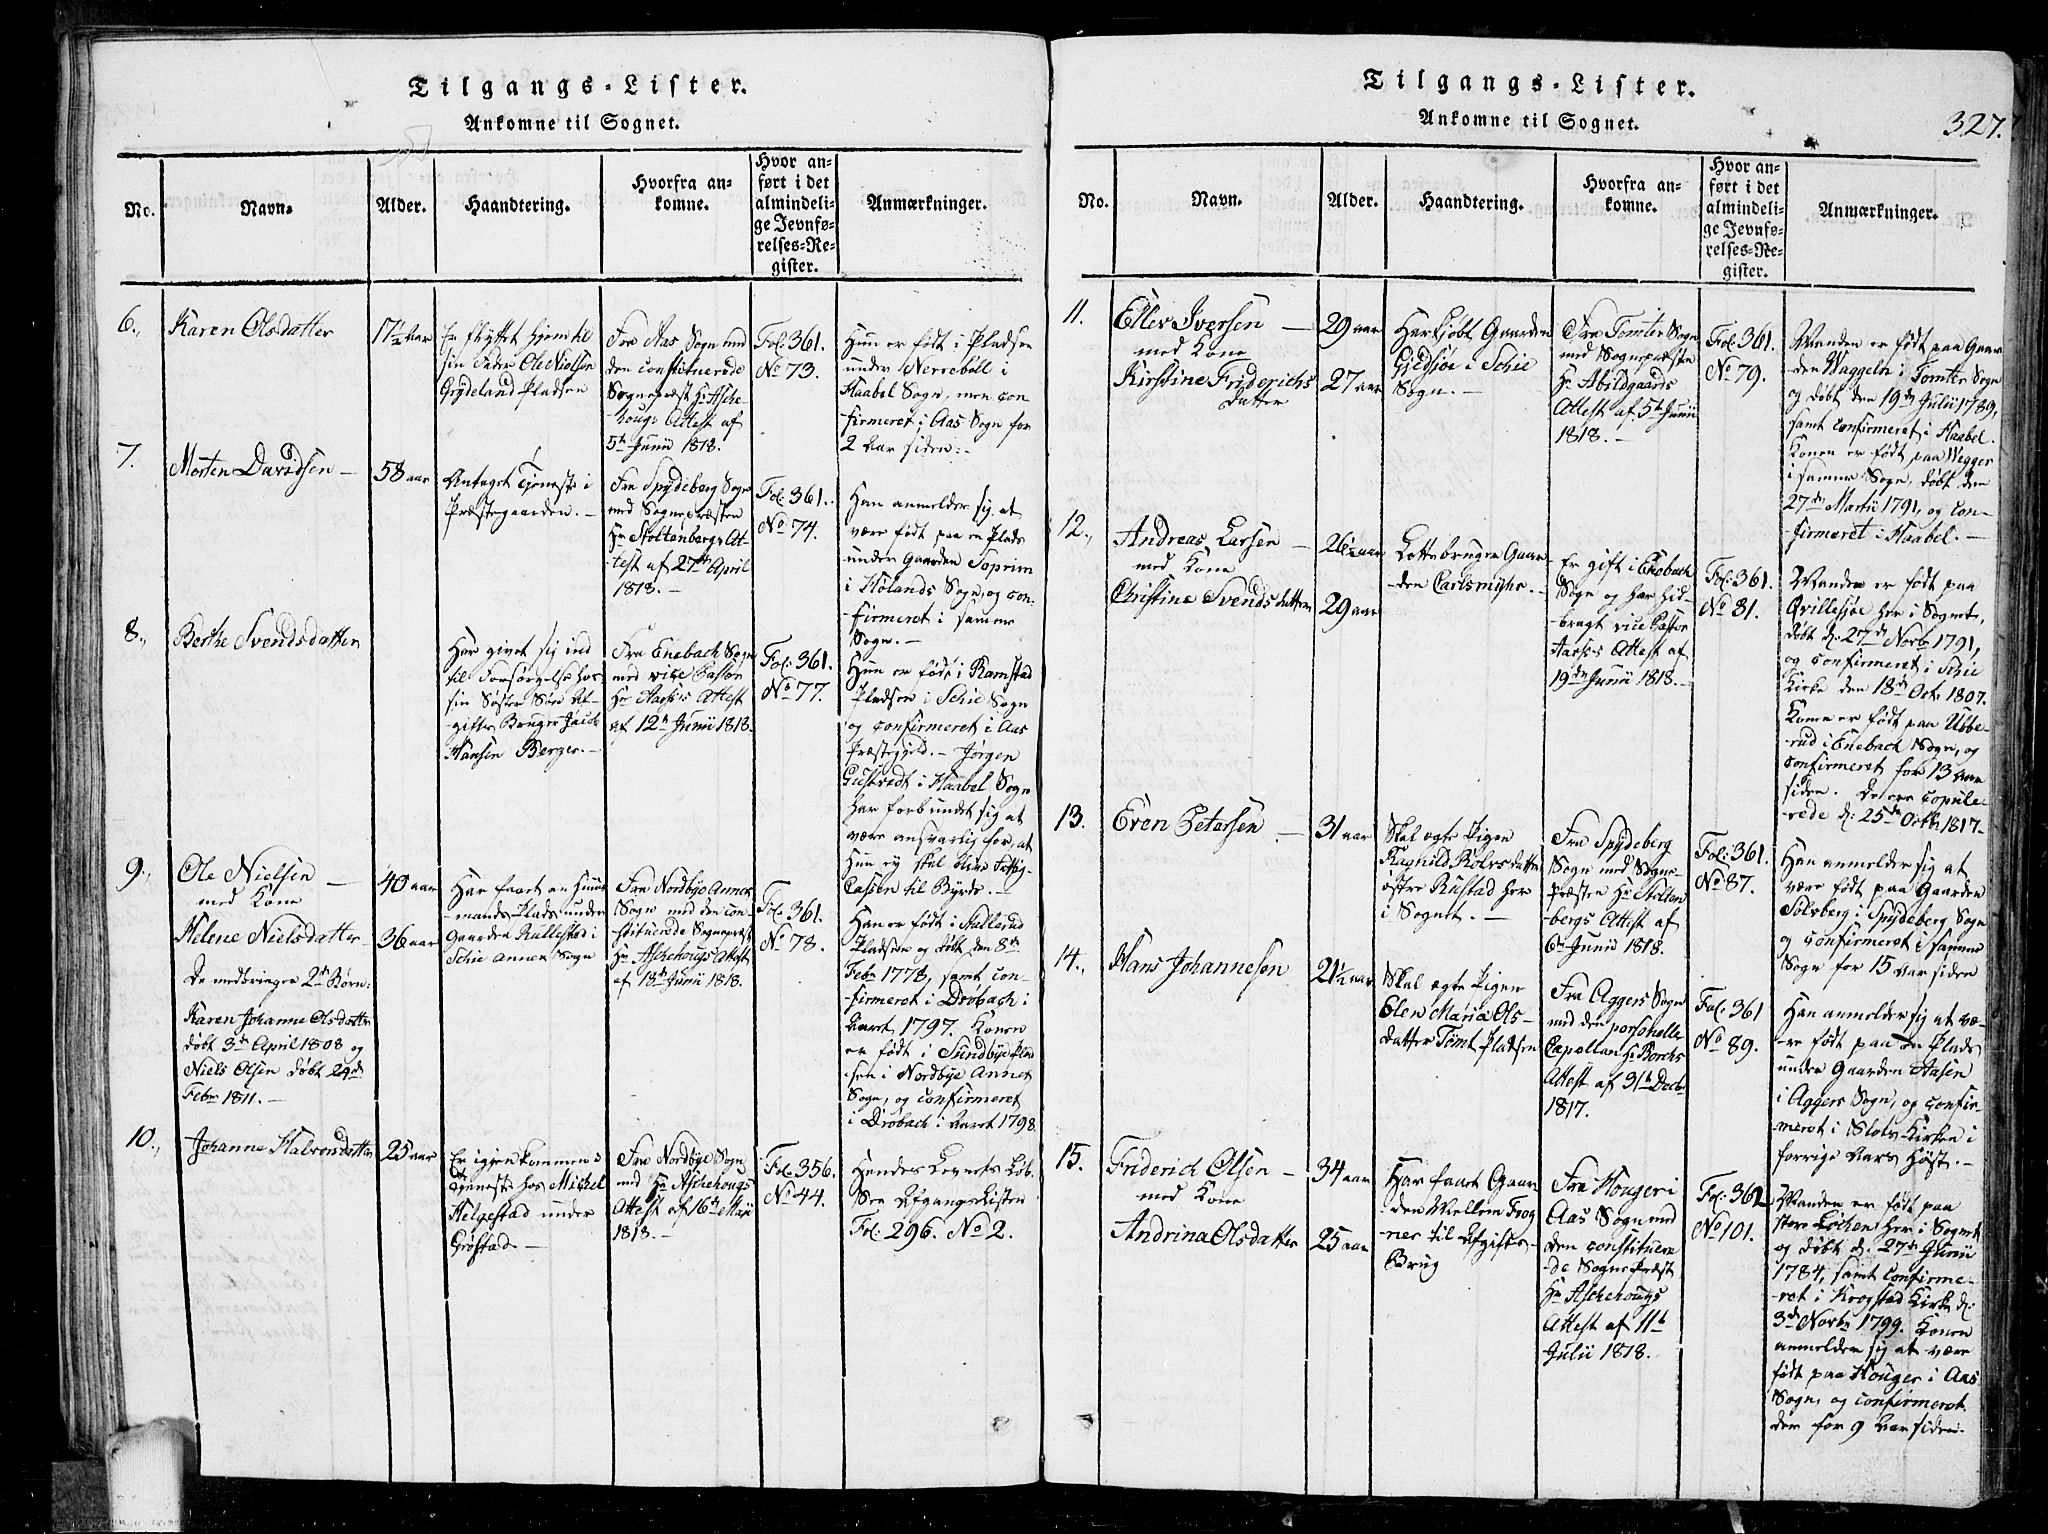 Tilgangs-Lister.
Ankomne til Sognet.
No.
Navn.
Alder.
Haandtering.
Hvorfra an-
komne.
Hvor an-
ført i det
almindeli-
ge Jevnfø-
relses-Re-
gister.
Anmærkninger.
6.,
Karen Olsdatter
17½ aar
Er flyttet hjem til
sin Fader Ole Nielsen
Grydeland Pladsen
Fra Aas Sogn med
den constituerede
Sognepræst Hr Asche-
hougs Attest af
5te Junii 1818.
Fol: 361.
No 73.
Hun er født i Pladsen
under Nerrebøll i
Haabel Sogn, men con-
firmeret i Aas Sogn for
2 Aar siden.-
7.
Morten Davidsen -
58 aar
Antaget tjeneste i
Præstegaarden. -
Fra Spydeberg Sogn
med Sognepræsten
Hr Stoltenbergs At-
test af 27de April
1818. -
Fol: 361.
No 74.
Han anmelder sig at
være født paa en Plads
under Gaarden Soprim
i Hølands Sogn, og con-
firmeret i samme
Sogn. -
8.,
Berthe Svendsdatter
Har givet sig ind
til Forsørgelse hos
sin Søster Søn Af-
gifts Bruger Jacob
Hansen Berger. -
Fra Enebach Sogn
med vice Pastor
Hr Aasses Attest
af 12te Junii 1818.
Fol: 361.
No 77.
Hun er føde i Ramstad
Pladsen i Schie Sogn
og confirmeret i Aas
Præstegjeld. - Jørgen
i Haabel Sogn
har forbundet sig at
være ansvarlig for, at
hun ey skal blive Fattig
Cassen til Byrde. -
9.,
Ole Nielsen -
med Kone
Helene Nielsdatter-
De medbringer 2de Børn:
Karen Johanne Olsdatter
døbt 3de April 1808 og
Niels Olsen døbt 29de
Febr 1811. -
40 aar
36 aar
Har faaet en Huus-
mands Plads under
Gaarden Kullestad i
Schie annex Sogn
Fra Nordbye Annex
Sogn med den con-
stituerede Sognepræst
Hr Aschehougs Attest
af 18de Junii 1818.
Fol: 361.
No 78.
Han er født i Hallerud
Pladsen og døbt den 8de
Febr 1778, samt con-
firmeret i Drøbach i
Aaret 1797. Konen
er født i Sundbye Plad
sen i Nordbye Annex
Sogn, og confirmeret
i Drøbach i Aaret 1798.
10.,
Johanne Halvorsdatter
25 aar
Er igjen kommen i
tjeneste hos Michel
Helgestad under
Grøstad. -
Fra Nordbye Sogn
med Hr Aschehougs
Attest af 16de Maji
1818. -
Fol: 356.
No 44.
Hendes Levnets Løb.
See Afgangs Listen
Fol: 296. No 2.
Tilgangs-Lister.
Ankomne til Sognet.
327.
No.
Navn.
Alder.
Haandtering.
Hvorfra an-
komne.
Hvor an-
ført i det
almindeli-
ge Jevnfø-
relses-Re-
gister.
Anmærkninger.
11.
Eller Iversen -
med Kone
Kirstine Friderichs
Datter
29 aar
27 aar
Har kjøbt Gaarden
Gjedsjøe i Schie
Sogn. -
Fra Tomter Sogn
med Sognepræsten
Hr Abildgaards
Attest af 5te Junii
1818. -
Fol: 361.
No 79.
Manden er født paa Gaar
den Waggeln i Tomter Sogn
og døbt den 19de Julii 1789,
samt confirmeret i Haabel.
Konen er født paa Wegger
i samme Sogn, døbt den
27de Martii 1791, og con-
firmeret i Haabel. -
12.,
Andreas Larsen -
med Kone
Christine Svendsdatter
26½ aar
29 aar
Lottebruger Gaar-
den Carlsmyhr. -
Er gift i Enebach
Sogn og har hid-
bragt vice Pastor
Aasses Attest af
19de Junii 1818. -
Fol: 361.
No 81.
Manden er født paa
Qvillesjøe her i Sognet,
døbt d: 27de Novbr 1791,
og confirmeret i Schie
Kirke den 18de Octr 1807.
Konen er født paa Ubbe-
rud i Enebach Sogn, og
confirmeret for 13 aar
siden. De ere copule-
rede d: 25de Octbr 1817-
13.
Even Petersen -
31 aar
Skal egte Pigen
Ragnild Rolvsdatter
østre Rustad her
i Sognet. -
Fra Spydeberg
Sogn med Sogne-
præsten Hr Stolten-
bergs Attest af
6te Junii 1818.
Fol: 361.
No 87.
Han anmelder sig at
være født paa Gaarden
Solsberg i Spydeberg Sogn
og confirmeret i samme
Sogn for 15 Aar siden
14.,
Hans Johannesen
21½ aar
Skal egte Pigen
Elen Maria Ols-
datter Tømt Pladsen
Fra Aggers Sogn
med den personelle
Capellan Hr Borchs
Attest af 31te Decbr
1817.
Fol: 361
No 89.
Han anmelder sig at væ-
re født paa en Plads
under Gaarden Aasen
i Aggers Sogn, og confir-
meret i Slots Kirken i
forrige Aars Høst. -
15.
Friderich Olsen -
med Kone
Andrina Olsdatter
34 aar
25 aar
Har faaet Gaar
den Mellem Frog
ner til Afgifts-
Brug
Fra Houger i
Aas Sogn med
den constituere
de Sognepræst
Hr Aschehougs
Attest af 11te
Julii 1818.
Fol: 362
No 101.
Manden er født paa
store Løchen her i Sognet
og døbt d. 27de Junii
1784, samt confirme-
ret i Krogstad Kirke d:
3de Novbr 1799. Konen
anmelder sig at være
født paa Houger i Aas
Sogn, og confirmeret
der for 9 Aar siden.-